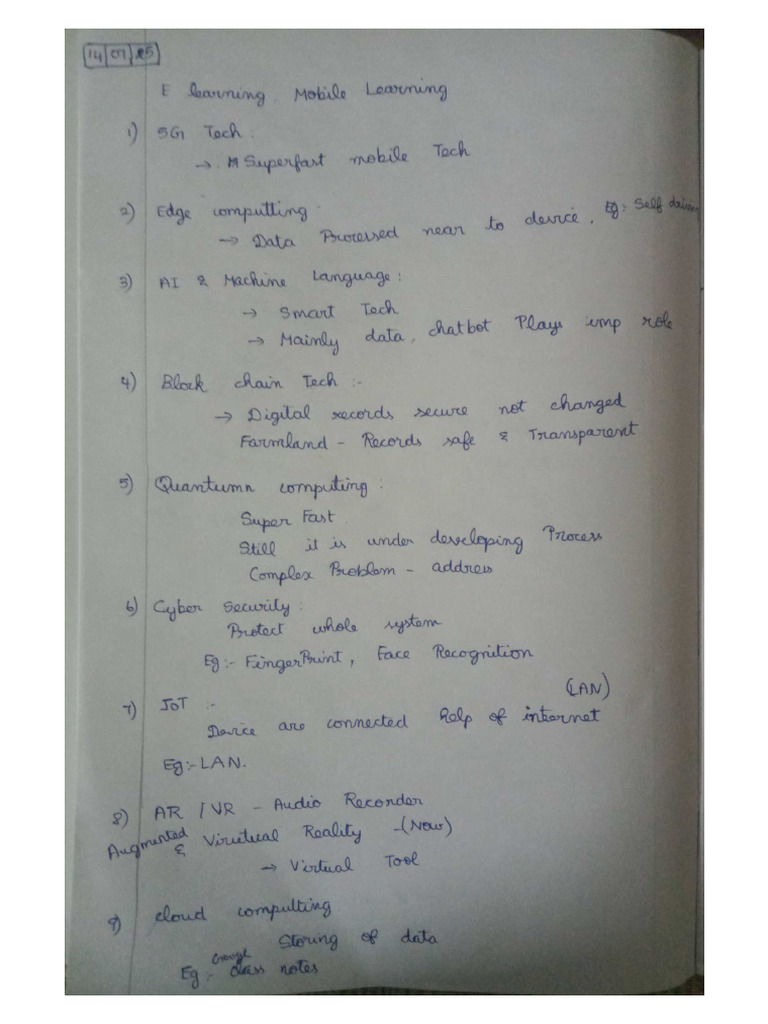 14 07 25
E learning, Mobile Learning
1) 5G Tech :
→ Superfast mobile Tech
2) Edge computting
→ Data Processed near to device. Eg: Self
3) AI & Machine Language :
→ Smart Tech
→ Mainly data, chatbot Plays imp role
4) Block chain Tech :-
→ Digital records secure not changed
Farmland - Records safe & Transparent
5) Quantumn computing :
Super Fast
Still it is under developing Process
Complex Problem - address
6) Cyber Security :
Protect whole system
Eg :- FingerPrint, Face Recognition
7) IoT :- (LAN)
Device are connected help of internet
Eg :- LAN.
8) AR / VR - Audio Recorder
Augmented & Virutual Reality - (Now)
→ Virtual Tool
9) cloud compulting
Storing of data
Eg :- Google class notes